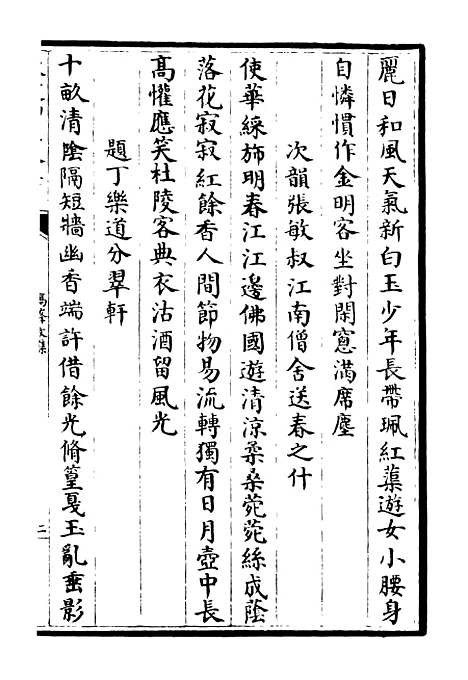 麗日和風天氣新白玉少年長帶珮紅蕖遊女小腰身
自憐慣作金明客坐對閑窻滿席塵
次韻張敏叔江南僧舍送春之什
使華綵斾明春江江邊佛國遊清涼柔桑菀菀絲成蔭
落花寂寂紅餘香人間節物易流轉獨有日月壺中長
高懽應笑杜陵客典衣沽酒留風光
題丁樂道分翠軒
十畝清陰隔短牆幽香端許借餘光脩篁戛玉亂垂影
高峰文集
二